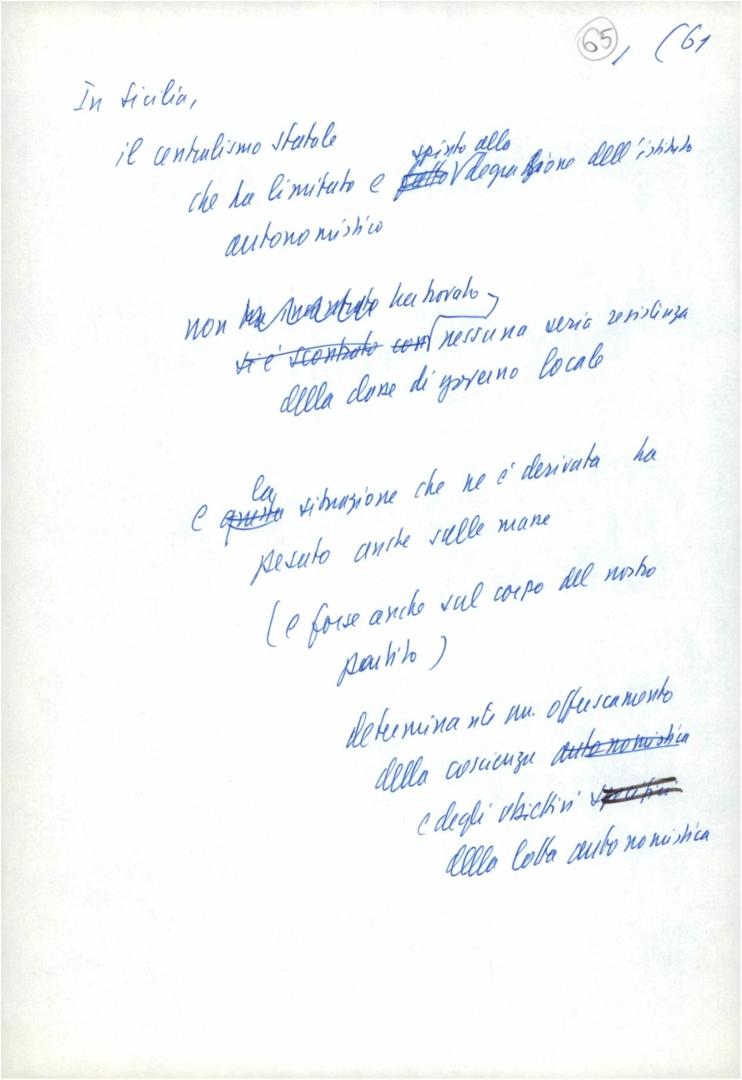 65, (61
In Sicilia,
il centralismo statale
spinto alla
che ha limitato e fatto degradazione dell'istituto
autonomistico
non ha incontrato ha trovato
si è scontrato con nessuna seria resistenza
della classe di governo locale
la
e questa situazione che ne è derivata ha
pesato anche sulle masse
(e forse anche sul corpo del nostro
partito)
determinante un offuscamento
della coscienza autonomistica
e degli obiettivi specifici
della lotta autonomistica